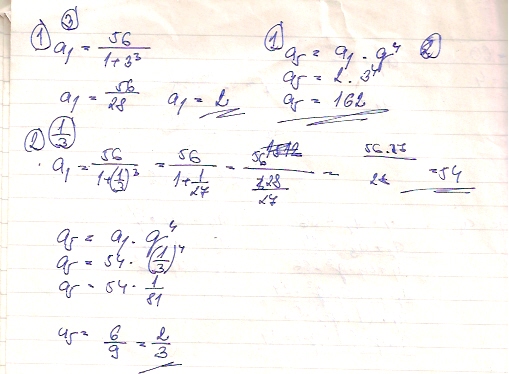 ① ③
a₁ = 56 / 1+3³
a₁ = 56/28   a₁ = 2
① a₅ = a₁ · q⁴
a₅ = 2 · 3⁴
a₅ = 162
② (1/3)
a₁ = 56 / 1+(1/3)³ = 56 / 1+1/27 = 56 / 28/27 = 56·27 / 28 = 54
a₅ = a₁ · q⁴
a₅ = 54 · (1/3)⁴
a₅ = 54 · 1/81
a₅ = 6/9 = 2/3